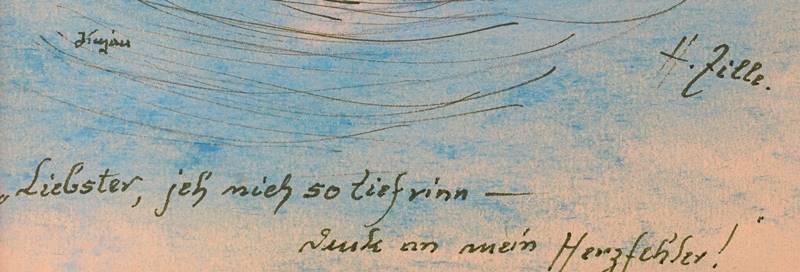 H. Zille.
„Liebster, jeh' nich so tief rinn —
denk an mein Herzfehler!"